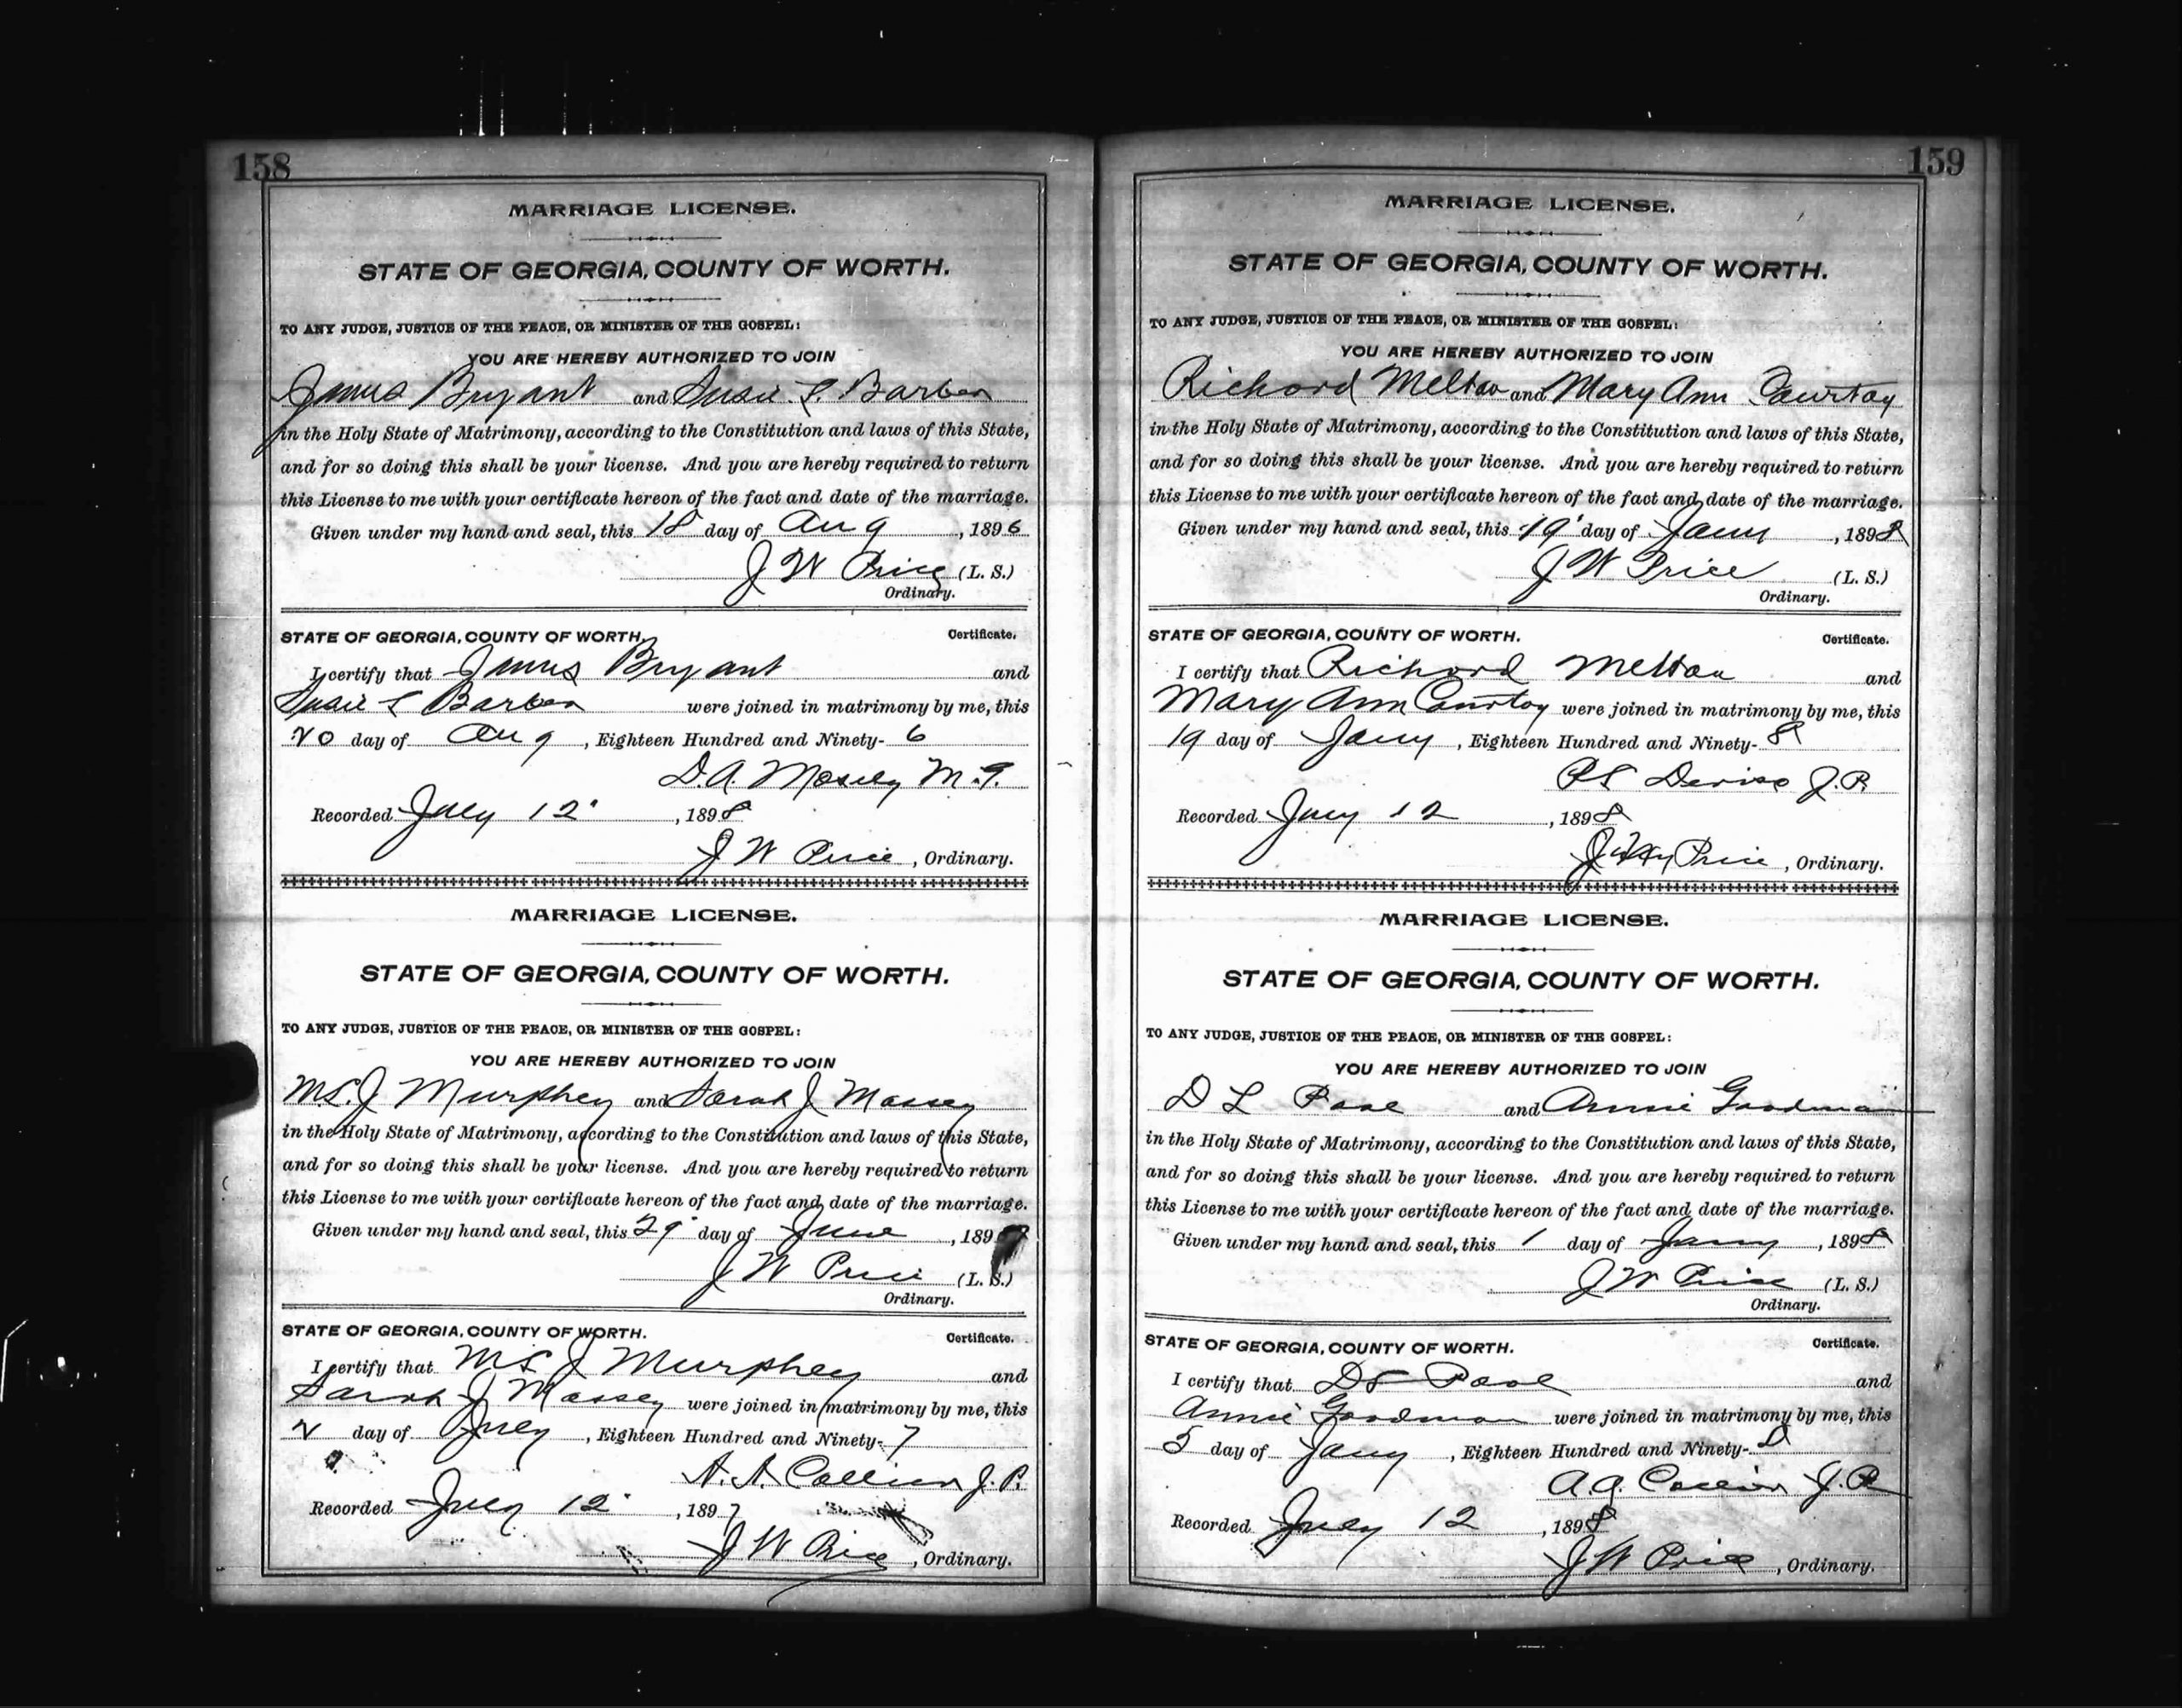 158
MARRIAGE LICENSE.
STATE OF GEORGIA, COUNTY OF WORTH.
TO ANY JUDGE, JUSTICE OF THE PEACE, OR MINISTER OF THE GOSPEL:
YOU ARE HEREBY AUTHORIZED TO JOIN
James Bryant and Susie L. Barber
in the Holy State of Matrimony, according to the Constitution and laws of this State,
and for so doing this shall be your license. And you are hereby required to return
this License to me with your certificate hereon of the fact and date of the marriage.
Given under my hand and seal, this 18 day of Aug, 1896
J W Price (L. S.)
Ordinary.
STATE OF GEORGIA, COUNTY OF WORTH. Certificate.
I certify that James Bryant and
Susie L Barber were joined in matrimony by me, this
20 day of Aug, Eighteen Hundred and Ninety-6
D. A. M.G.
Recorded July 12, 1898
J W Price, Ordinary.
MARRIAGE LICENSE.
STATE OF GEORGIA, COUNTY OF WORTH.
TO ANY JUDGE, JUSTICE OF THE PEACE, OR MINISTER OF THE GOSPEL:
YOU ARE HEREBY AUTHORIZED TO JOIN
J Murphey and Sarah J Massey
in the Holy State of Matrimony, according to the Constitution and laws of this State,
and for so doing this shall be your license. And you are hereby required to return
this License to me with your certificate hereon of the fact and date of the marriage.
Given under my hand and seal, this 29 day of June, 189
J W Price (L. S.)
Ordinary.
STATE OF GEORGIA, COUNTY OF WORTH. Certificate.
I certify that J Murphey and
Sarah J Massey were joined in matrimony by me, this
2 day of July, Eighteen Hundred and Ninety-7
A. A. Collier J. P.
Recorded July 12, 1897
J W Price, Ordinary.
159
MARRIAGE LICENSE.
STATE OF GEORGIA, COUNTY OF WORTH.
TO ANY JUDGE, JUSTICE OF THE PEACE, OR MINISTER OF THE GOSPEL:
YOU ARE HEREBY AUTHORIZED TO JOIN
Richard Melton and Mary Ann
in the Holy State of Matrimony, according to the Constitution and laws of this State,
and for so doing this shall be your license. And you are hereby required to return
this License to me with your certificate hereon of the fact and date of the marriage.
Given under my hand and seal, this 19 day of Jany, 1898
J W Price (L. S.)
Ordinary.
STATE OF GEORGIA, COUNTY OF WORTH. Certificate.
I certify that Richard Melton and
Mary Ann were joined in matrimony by me, this
19 day of Jany, Eighteen Hundred and Ninety-8
Deriso J. P.
Recorded July 12, 1898
Price, Ordinary.
MARRIAGE LICENSE.
STATE OF GEORGIA, COUNTY OF WORTH.
TO ANY JUDGE, JUSTICE OF THE PEACE, OR MINISTER OF THE GOSPEL:
YOU ARE HEREBY AUTHORIZED TO JOIN
D L and Annie Goodman
in the Holy State of Matrimony, according to the Constitution and laws of this State,
and for so doing this shall be your license. And you are hereby required to return
this License to me with your certificate hereon of the fact and date of the marriage.
Given under my hand and seal, this 1 day of Jany, 1898
J W Price (L. S.)
Ordinary.
STATE OF GEORGIA, COUNTY OF WORTH. Certificate.
I certify that D L and
Annie Goodman were joined in matrimony by me, this
5 day of Jany, Eighteen Hundred and Ninety-8
A. A. Collier J. P.
Recorded July 12, 1898
J W Price, Ordinary.